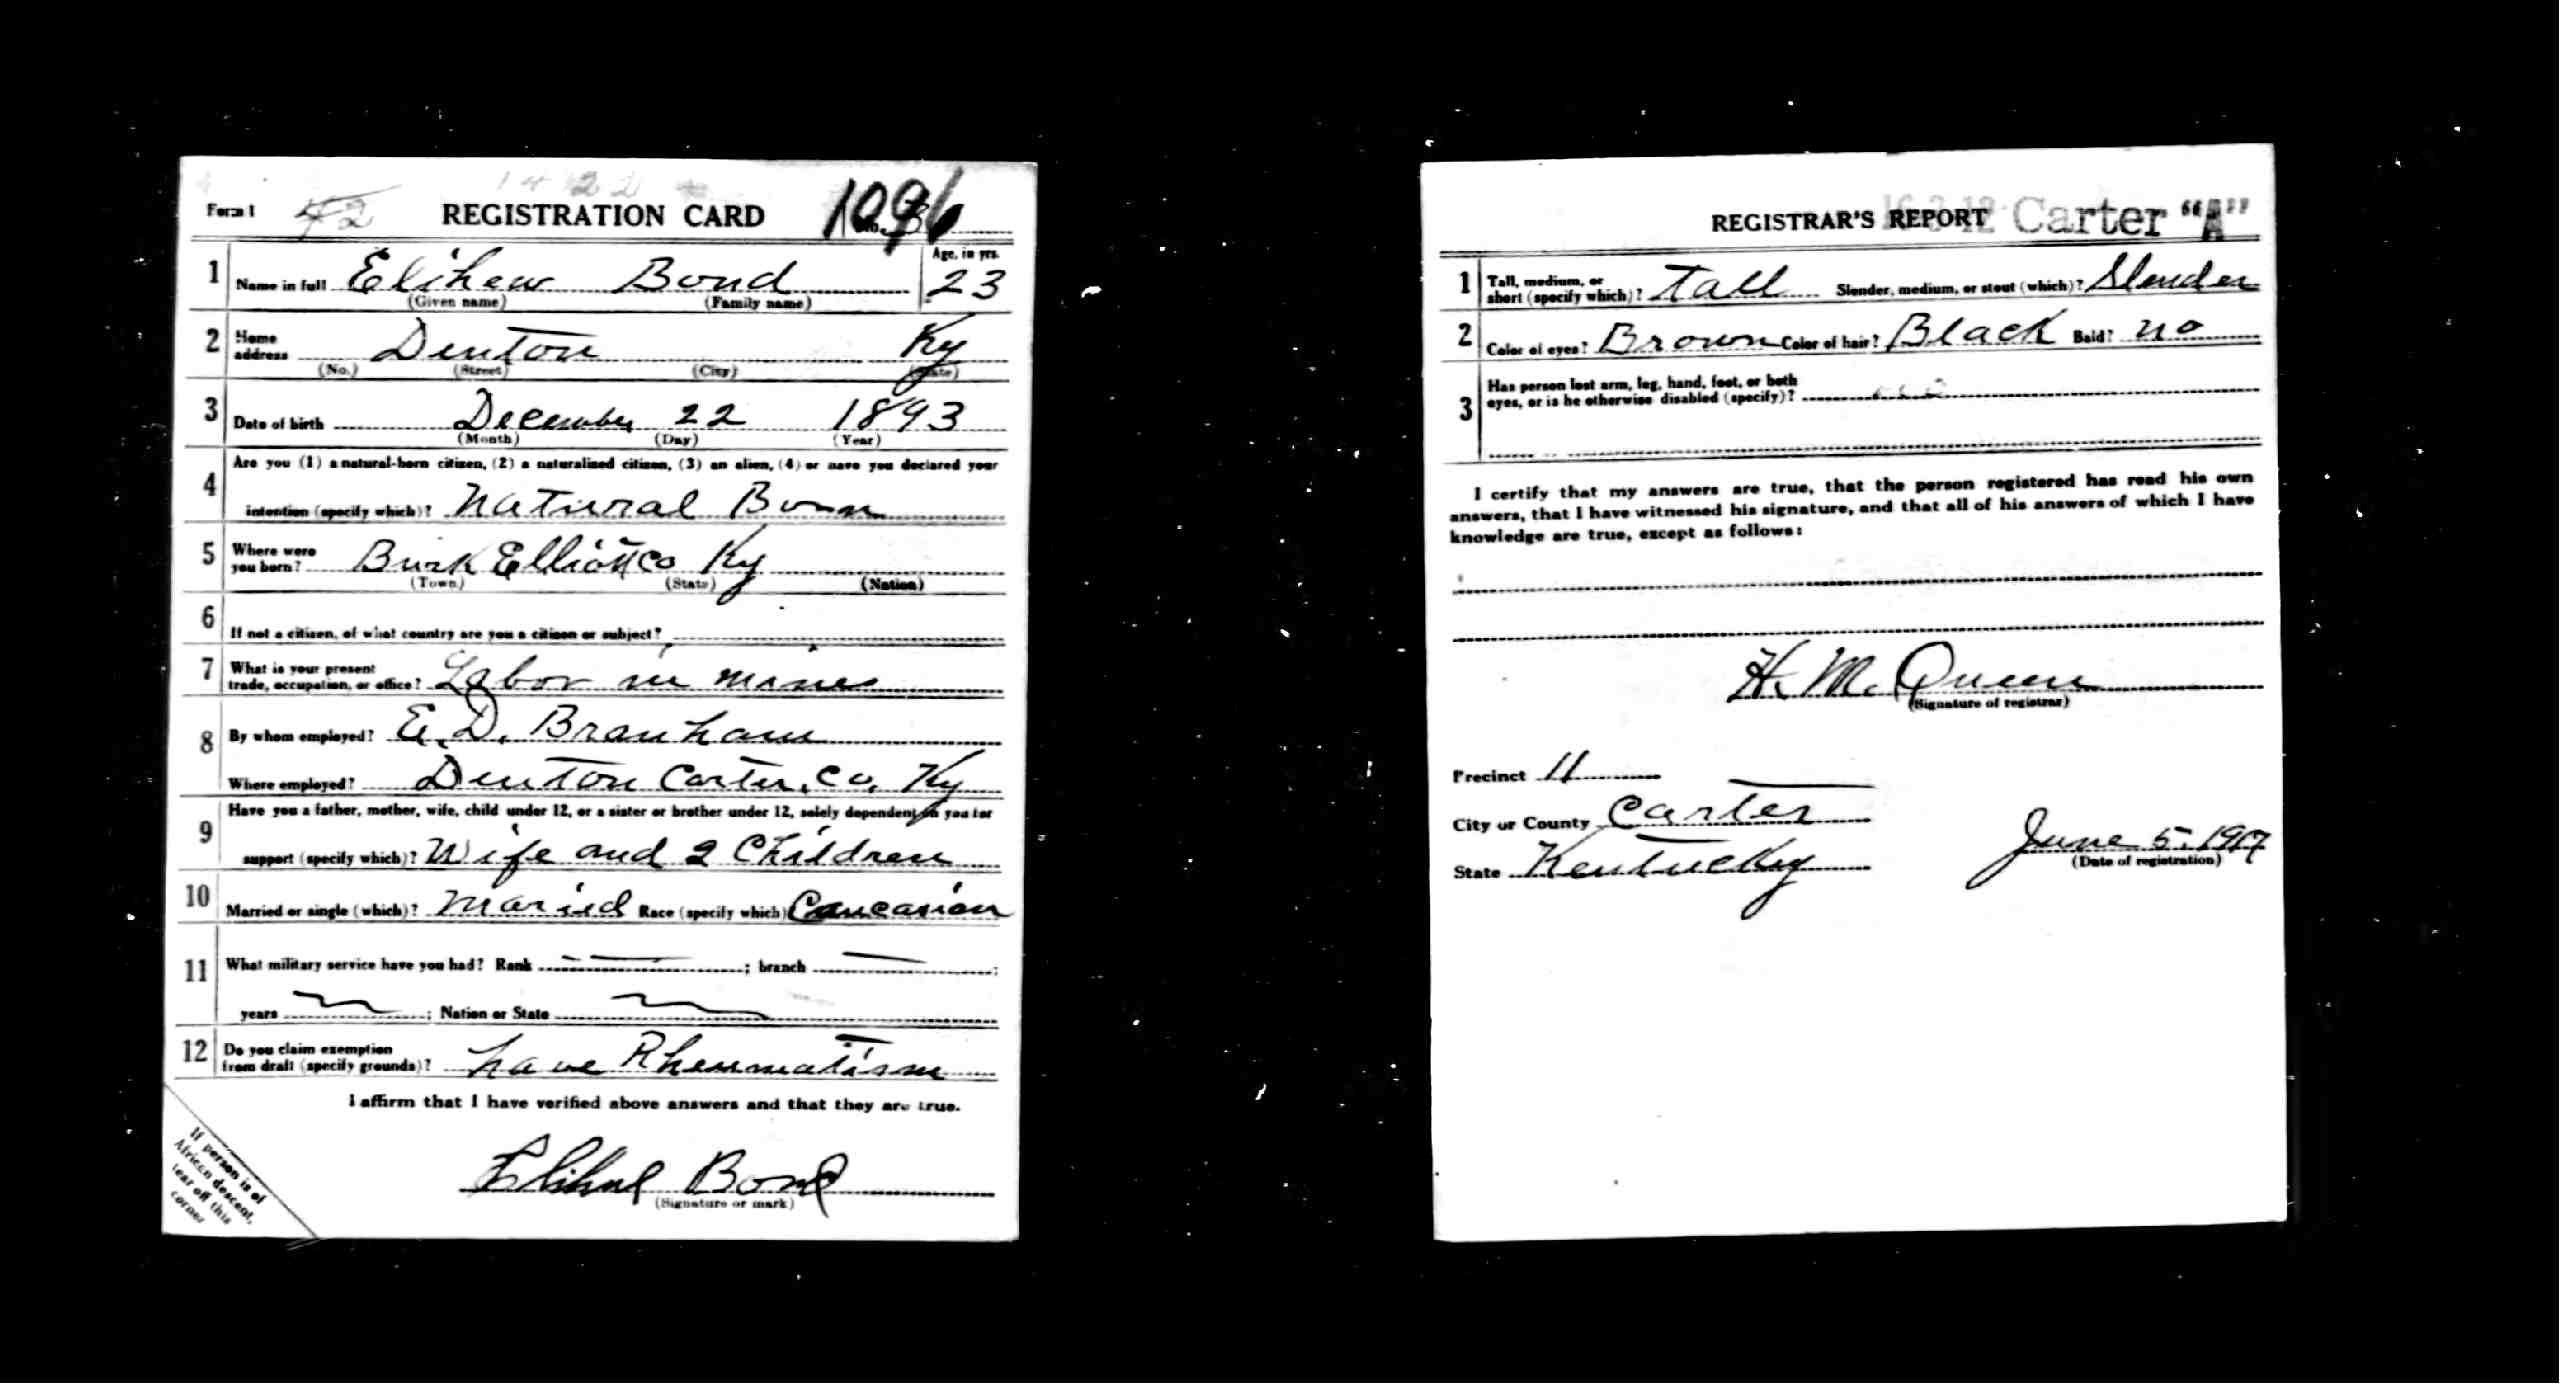 1422
Form 1 42 REGISTRATION CARD 1096
Age, in yrs.
1 Name in full Elihew Bond 23
(Given name) (Family name)
2 Home address Denton Ky
(No.) (Street) (City) (State)
3 Date of birth December 22 1893
(Month) (Day) (Year)
Are you (1) a natural-born citizen, (2) a naturalized citizen, (3) an alien, (4) or have you declared your
4 intention (specify which)? Natural Born
5 Where were you born? Burk Elliott Co Ky
(Town) (State) (Nation)
6 If not a citizen, of what country are you a citizen or subject?
7 What is your present trade, occupation, or office? Labor in mines
8 By whom employed? E. D. Branham
Where employed? Denton Carter, Co, Ky
Have you a father, mother, wife, child under 12, or a sister or brother under 12, solely dependent on you for
9 support (specify which)? Wife and 2 Children
10 Married or single (which)? Maried Race (specify which) Caucasion
11 What military service have you had? Rank ; branch ;
years ; Nation or State
12 Do you claim exemption from draft (specify grounds)? have Rheumatism
I affirm that I have verified above answers and that they are true.
Elihue Bond
(Signature or mark)
If person is of
African descent,
tear off this
corner
REGISTRAR'S REPORT 16-3-12 Carter "A"
1 Tall, medium, or short (specify which)? Tall Slender, medium, or stout (which)? Slender
2 Color of eyes? Brown Color of hair? Black Bald? no
3 Has person lost arm, leg, hand, foot, or both
eyes, or is he otherwise disabled (specify)?
I certify that my answers are true, that the person registered has read his own
answers, that I have witnessed his signature, and that all of his answers of which I have
knowledge are true, except as follows:
H. McQueen
(Signature of registrar)
Precinct 11
City or County Carter
State Kentucky June 5. 1917
(Date of registration)